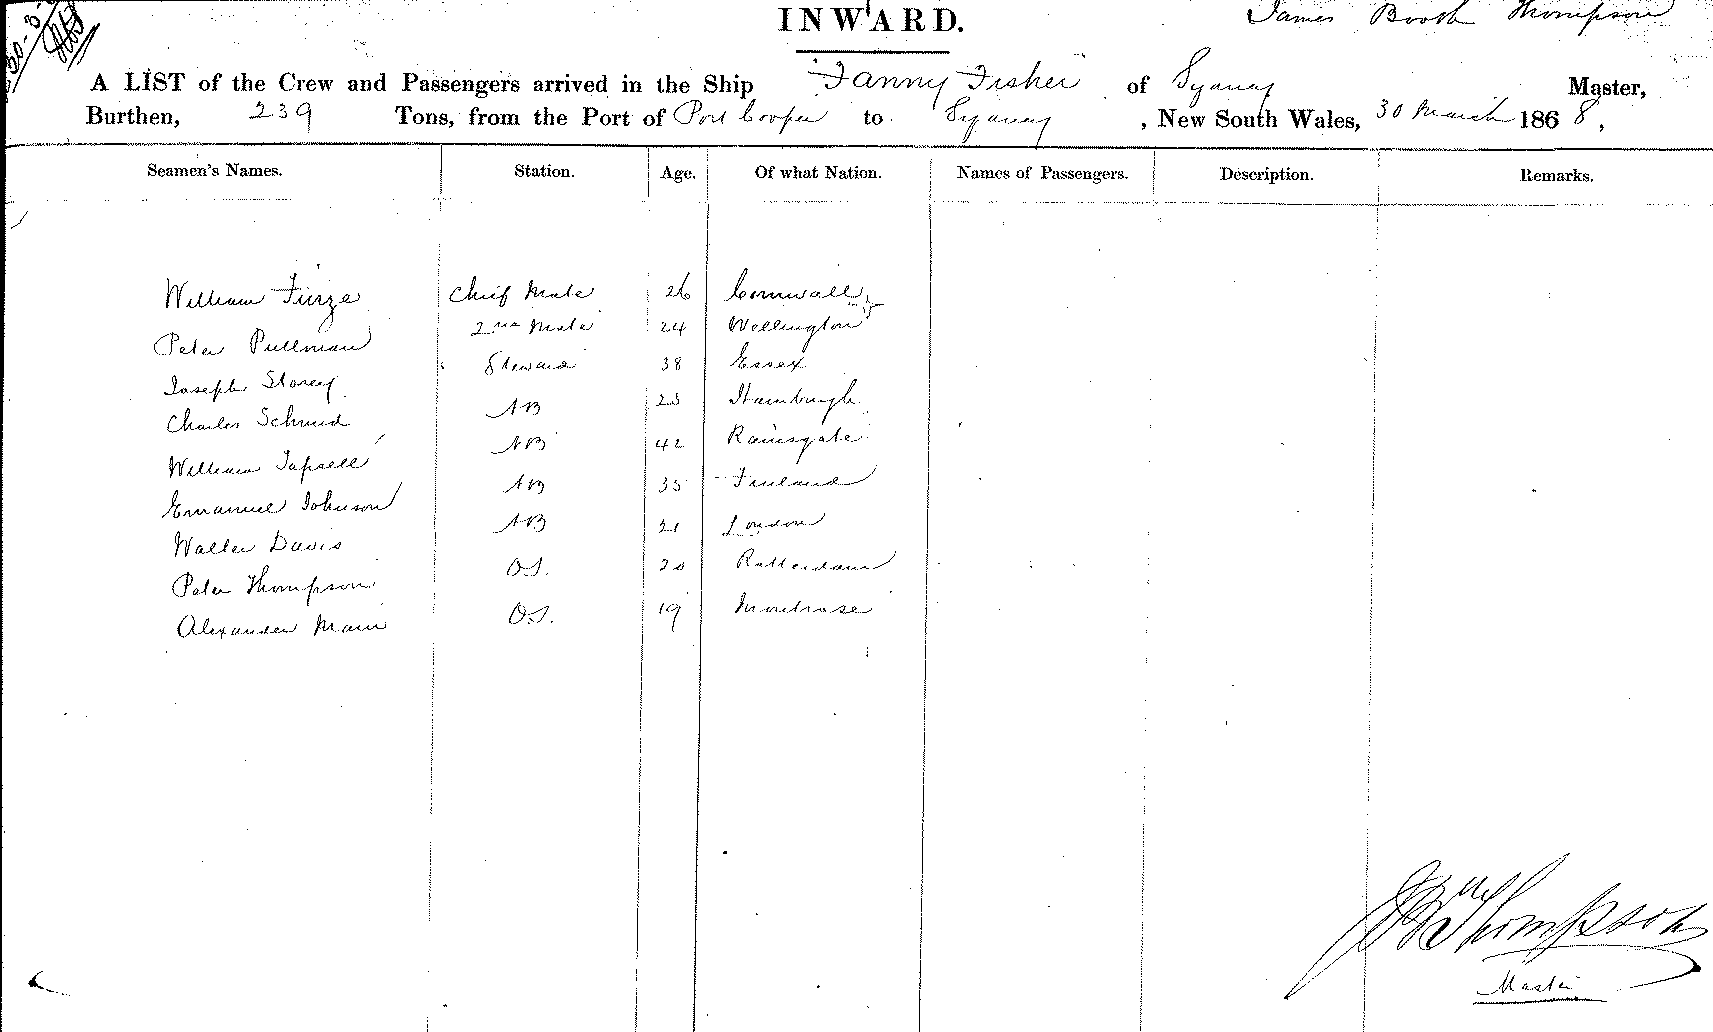 30-3-
INWARD.
James Booth Thompson
A LIST of the Crew and Passengers arrived in the Ship Fanny Fisher of Sydney Master,
Burthen, 239 Tons, from the Port of Port Cooper to Sydney, New South Wales, 30 March 1868,
Seamen's Names. Station. Age. Of what Nation. Names of Passengers. Description. Remarks.
William Furze Chief Mate 26 Cornwall
Peter Pullman 2nd Mate 24 Wellington
Joseph Storey Steward 38 Essex
Charles Schmid AB 25 Hamburgh
William Tapsell AB 42 Ramsgate
Emanuel Johnson AB 35 Finland
Walter Davis AB 21 London
Peter Thompson OS. 20 Rotterdam
Alexander Main OS. 19 Montrose
Thompson
Master